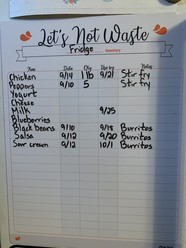 Let's Not Waste
Fridge Inventory
Item Date Qty Use by Notes
Chicken 9/14 1 lb 9/21 Stir fry
Peppers 9/10 5 Stir fry
Yogurt
Cheese
Milk 9/25
Blueberries
Black beans 9/10 9/18 Burritos
Salsa 9/12 9/20 Burritos
Sour cream 9/12 10/1 Burritos